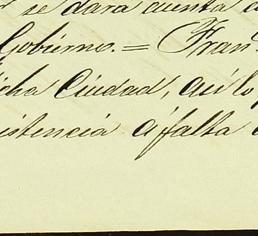 se dará cuenta
Gobierno. = Fran
icha Ciudad, así lo
istencia á falta